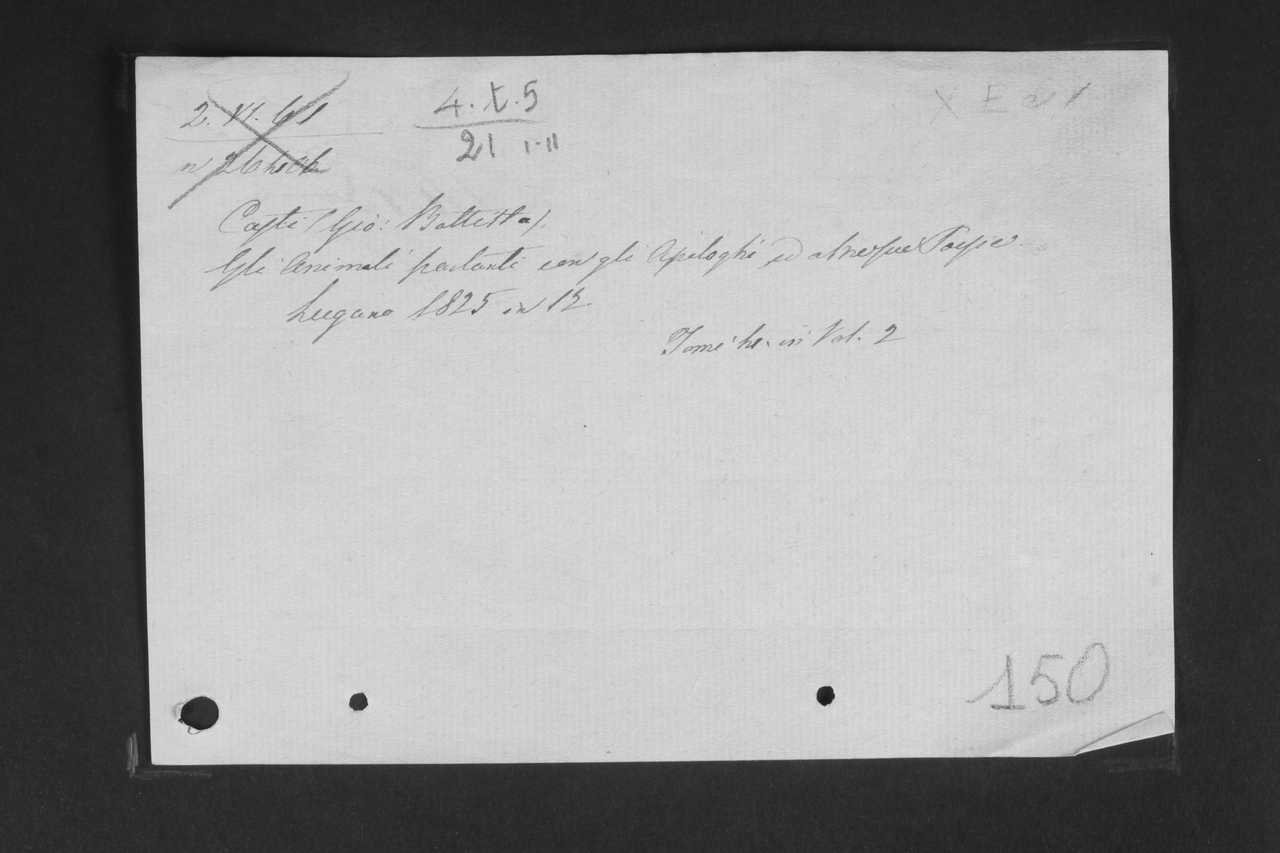 4. X. 5
21 I-II
Casti (Gio: Battista).
Gli Animali parlanti con gli Apologhi ed altre sue Poesie.
Lugano 1825 in 12
Tomi in Vol. 2
150